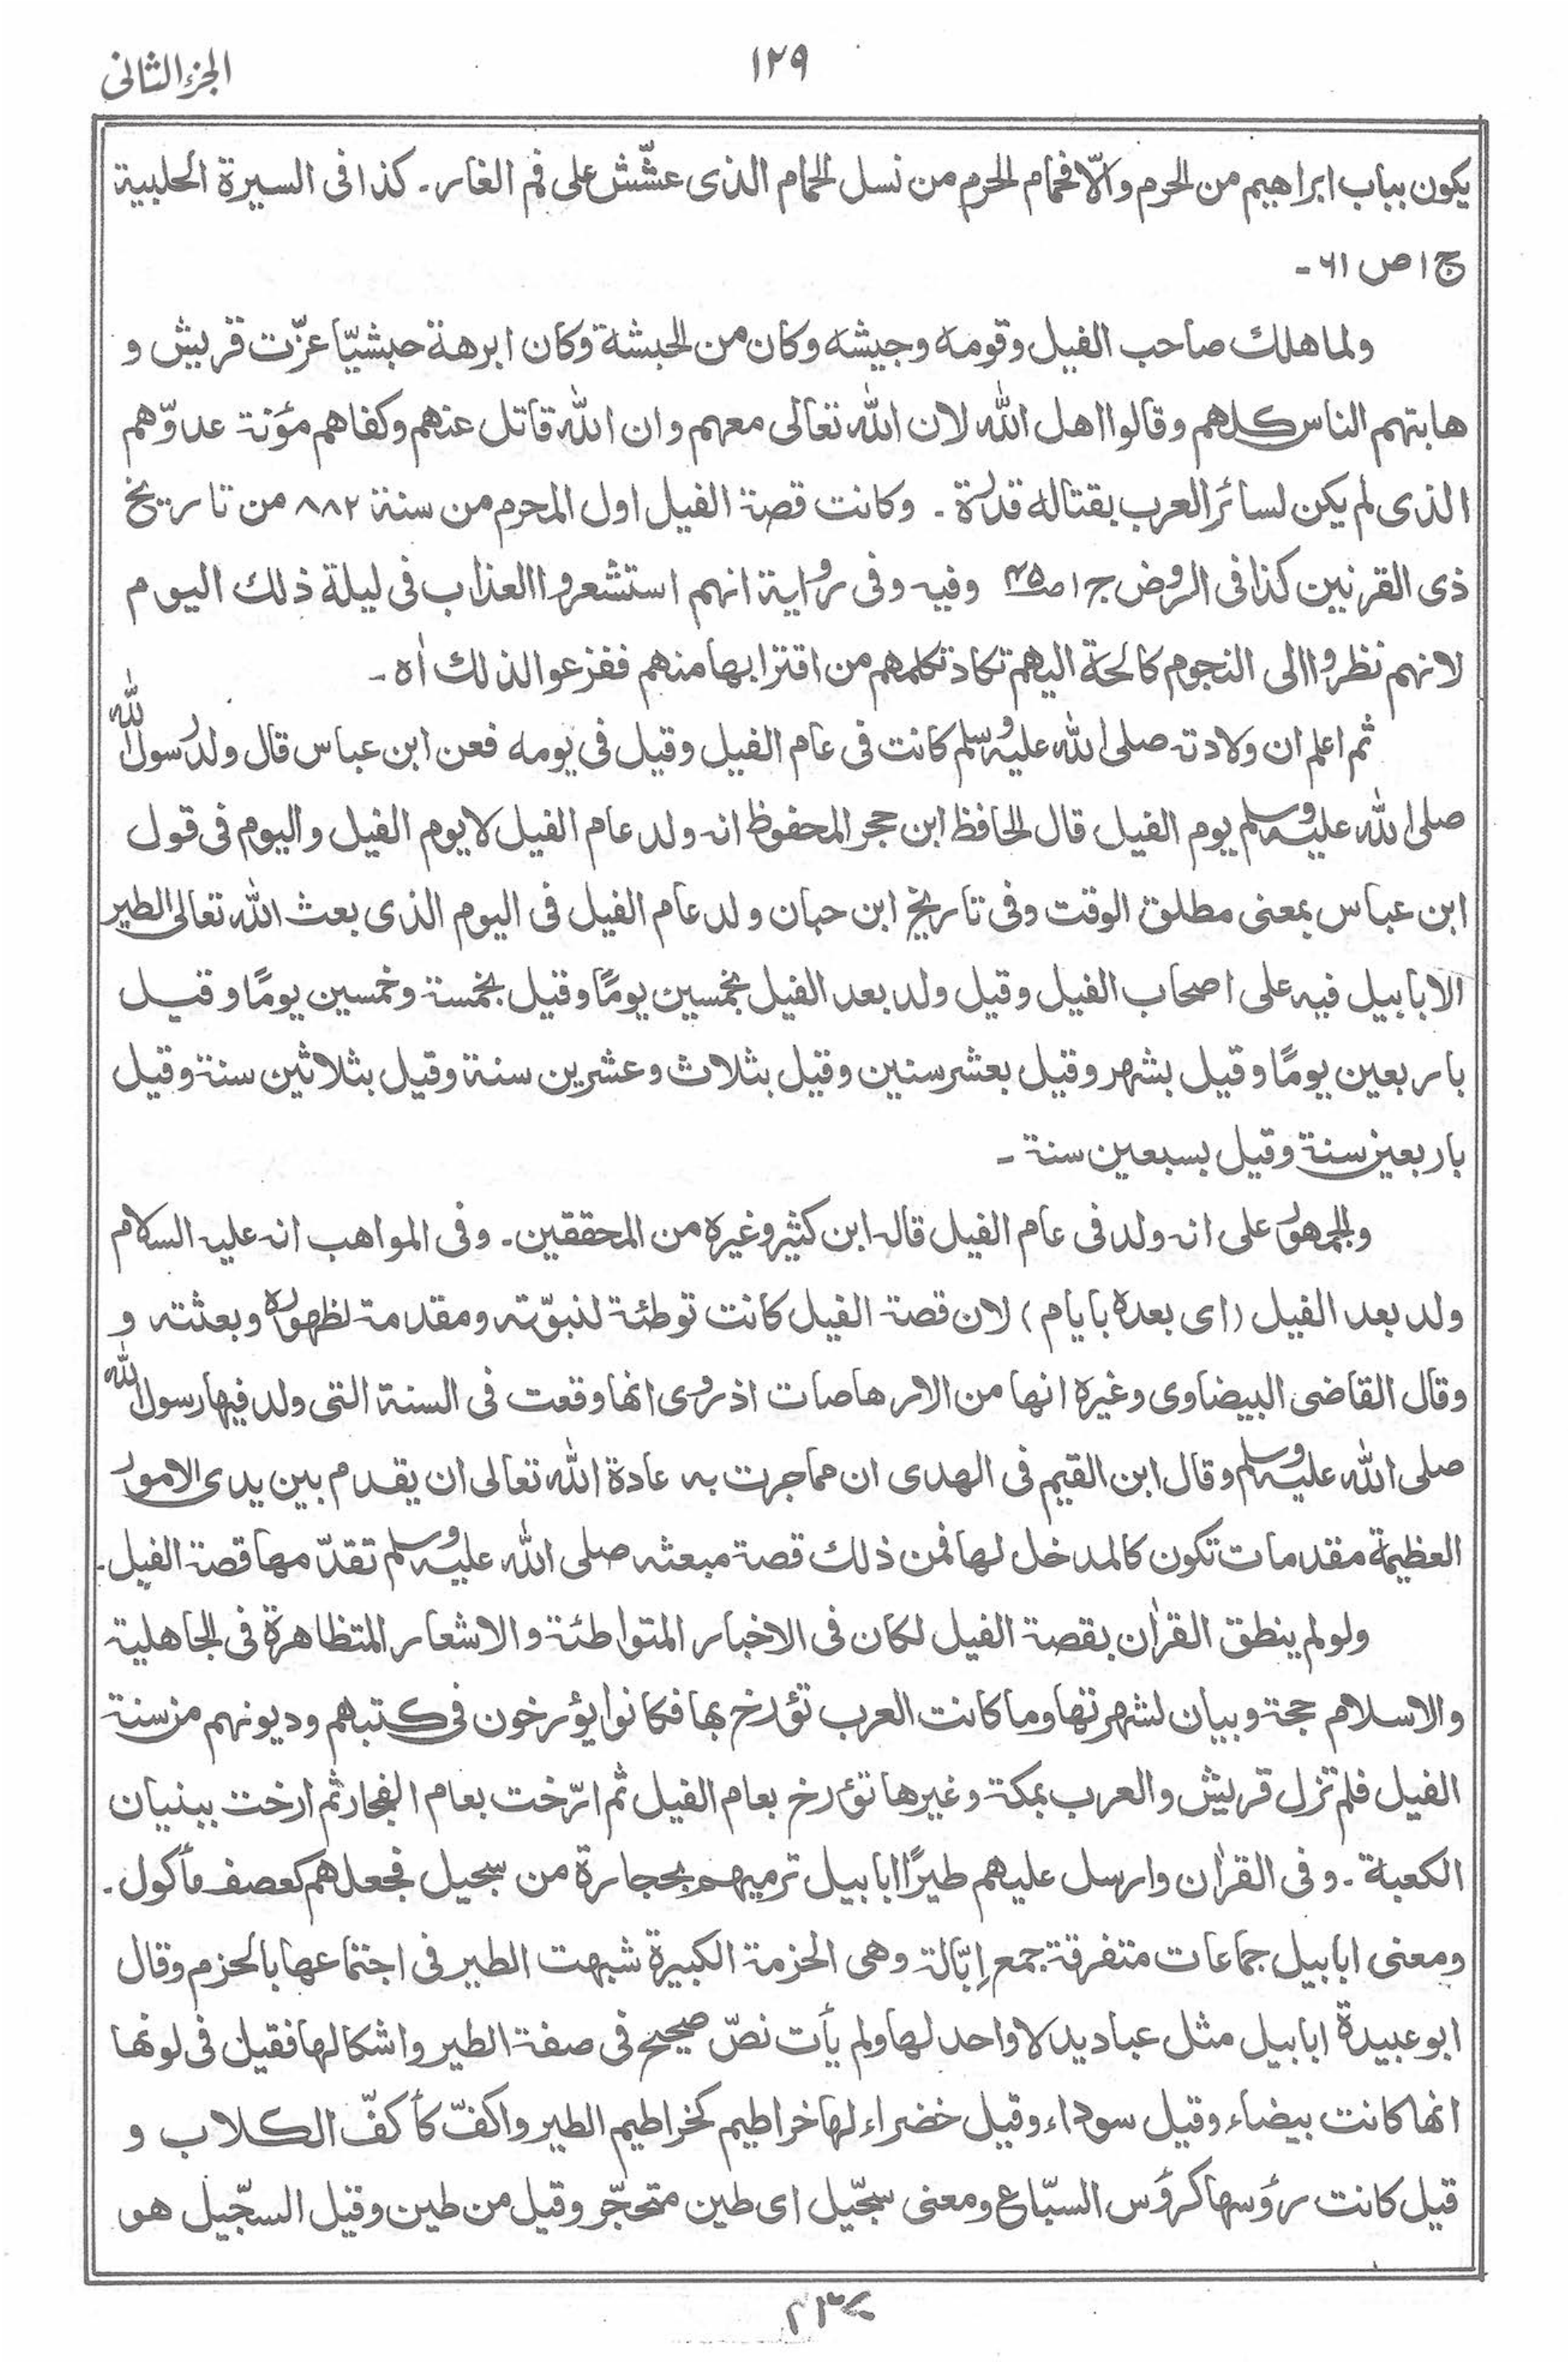 الجزء الثانی
۱۲۹
یکون بباب ابراهیم من الحرم والّا فحمام الحرم من نسل الحمام الذی عشّش علی فم الغار۔ کذا فی السیرة الحلبیة
ج ۱ ص ۶۱ ۔
ولما هلك صاحب الفیل وقومه وجیشه وکان من الحبشة وکان ابرهة حبشیّا عزّت قریش و
هابتهم الناس کلهم وقالوا اهل الله لان الله تعالی معهم وان الله قاتل عنهم وکفاهم مؤنة عدوّهم
الذی لم یکن لسائر العرب بقتاله قدرة ۔ وکانت قصة الفیل اول المحرم من سنة ۸۸۲ من تاریخ
ذی القرنین کذا فی الروض ج ۱ ص۴۵ وفیه وفی روایة انهم استشعروا العذاب فی لیلة ذلك الیوم
لانهم نظروا الی النجوم کالحة الیهم تکاد تکلمهم من اقترابها منهم ففزعوا لذلك اه ۔
ثم اعلم ان ولادته صلی الله علیه وسلم کانت فی عام الفیل وقیل فی یومه فعن ابن عباس قال ولد رسول الله
صلی الله علیه وسلم یوم الفیل قال الحافظ ابن حجر المحفوظ انه ولد عام الفیل لا یوم الفیل والیوم فی قول
ابن عباس بمعنی مطلق الوقت وفی تاریخ ابن حبان ولد عام الفیل فی الیوم الذی بعث الله تعالی الطیر
الابابیل فیه علی اصحاب الفیل وقیل ولد بعد الفیل بخمسین یومًا وقیل بخمسة وخمسین یومًا وقیل
باربعین یومًا وقیل بشهر وقیل بعشر سنین وقیل بثلاث وعشرین سنة وقیل بثلاثین سنة وقیل
باربعین سنة وقیل بسبعین سنة ۔
والجمهور علی انه ولد فی عام الفیل قاله ابن کثیر وغیره من المحققین ۔ وفی المواهب انه علیه السلام
ولد بعد الفیل (ای بعده بایام) لان قصة الفیل کانت توطئة لنبوّته ومقدمة لظهوره وبعثته و
وقال القاضی البیضاوی وغیره انها من الارهاصات اذ روی انها وقعت فی السنة التی ولد فیها رسول الله
صلی الله علیه وسلم وقال ابن القیم فی الهدی ان مما جرت به عادة الله تعالی ان یقدم بین یدی الامور
العظیمة مقدمات تکون کالمدخل لها فمن ذلك قصة مبعثه صلی الله علیه وسلم تقدّمها قصة الفیل ۔
ولو لم ینطق القرٰان بقصة الفیل لکان فی الاخبار المتواطئة والاشعار المتظاهرة فی الجاهلیة
والاسلام حجة وبیان لشهرتها وما کانت العرب تؤرخ بها فکانوا یؤرخون فی کتبهم ودیونهم من سنة
الفیل فلم تزل قریش والعرب بمکة وغیرها تؤرخ بعام الفیل ثم ارّخت بعام الفجار ثم ارخت ببنیان
الکعبة ۔ وفی القرٰان وارسل علیهم طیرًا ابابیل ترمیهم بحجارة من سجیل فجعلهم کعصف مأکول ۔
ومعنی ابابیل جماعات متفرقة جمع اِبّالة وهی الحزمة الکبیرة شبهت الطیر فی اجتماعها بالحزم وقال
ابو عبیدة ابابیل مثل عبادید لا واحد لها ولم یأت نصّ صحیح فی صفة الطیر واشکالها فقیل فی لونها
انها کانت بیضاء وقیل سوداء وقیل خضراء لها خراطیم کخراطیم الطیر واکفّ کأکفّ الکلاب و
قیل کانت رؤسها کرؤس السبّاع ومعنی سجّیل ای طین متحجّر وقیل من طین وقیل السجّیل هو